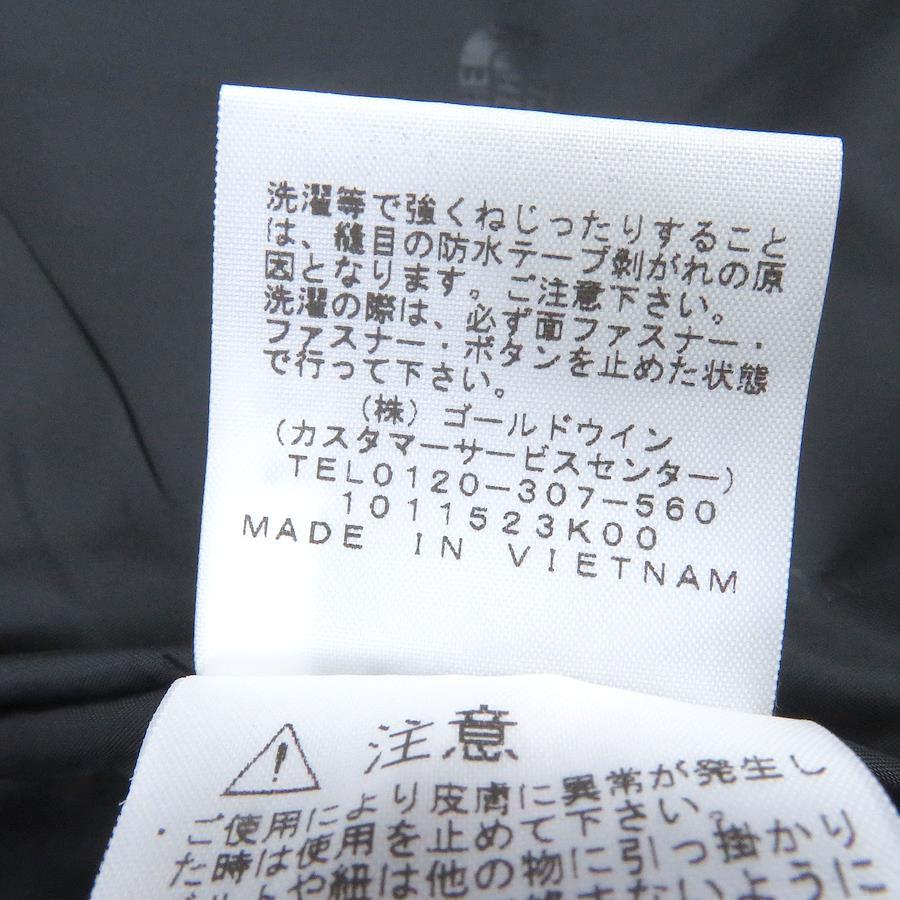 洗濯等で強くねじったりすること
は、縫目の防水テープ剥がれの原
因となります。ご注意下さい。
洗濯の際は、必ず面ファスナー・
ファスナー・ボタンを止めた状態
で行って下さい。
(株)ゴールドウイン
(カスタマーサービスセンター)
TEL0120-307-560
1011523K00
MADE IN VIETNAM
注意
・ご使用により皮膚に異常が発生し
た時は使用を止めて下さい。
や紐は他の物に引っ掛かり
ないように